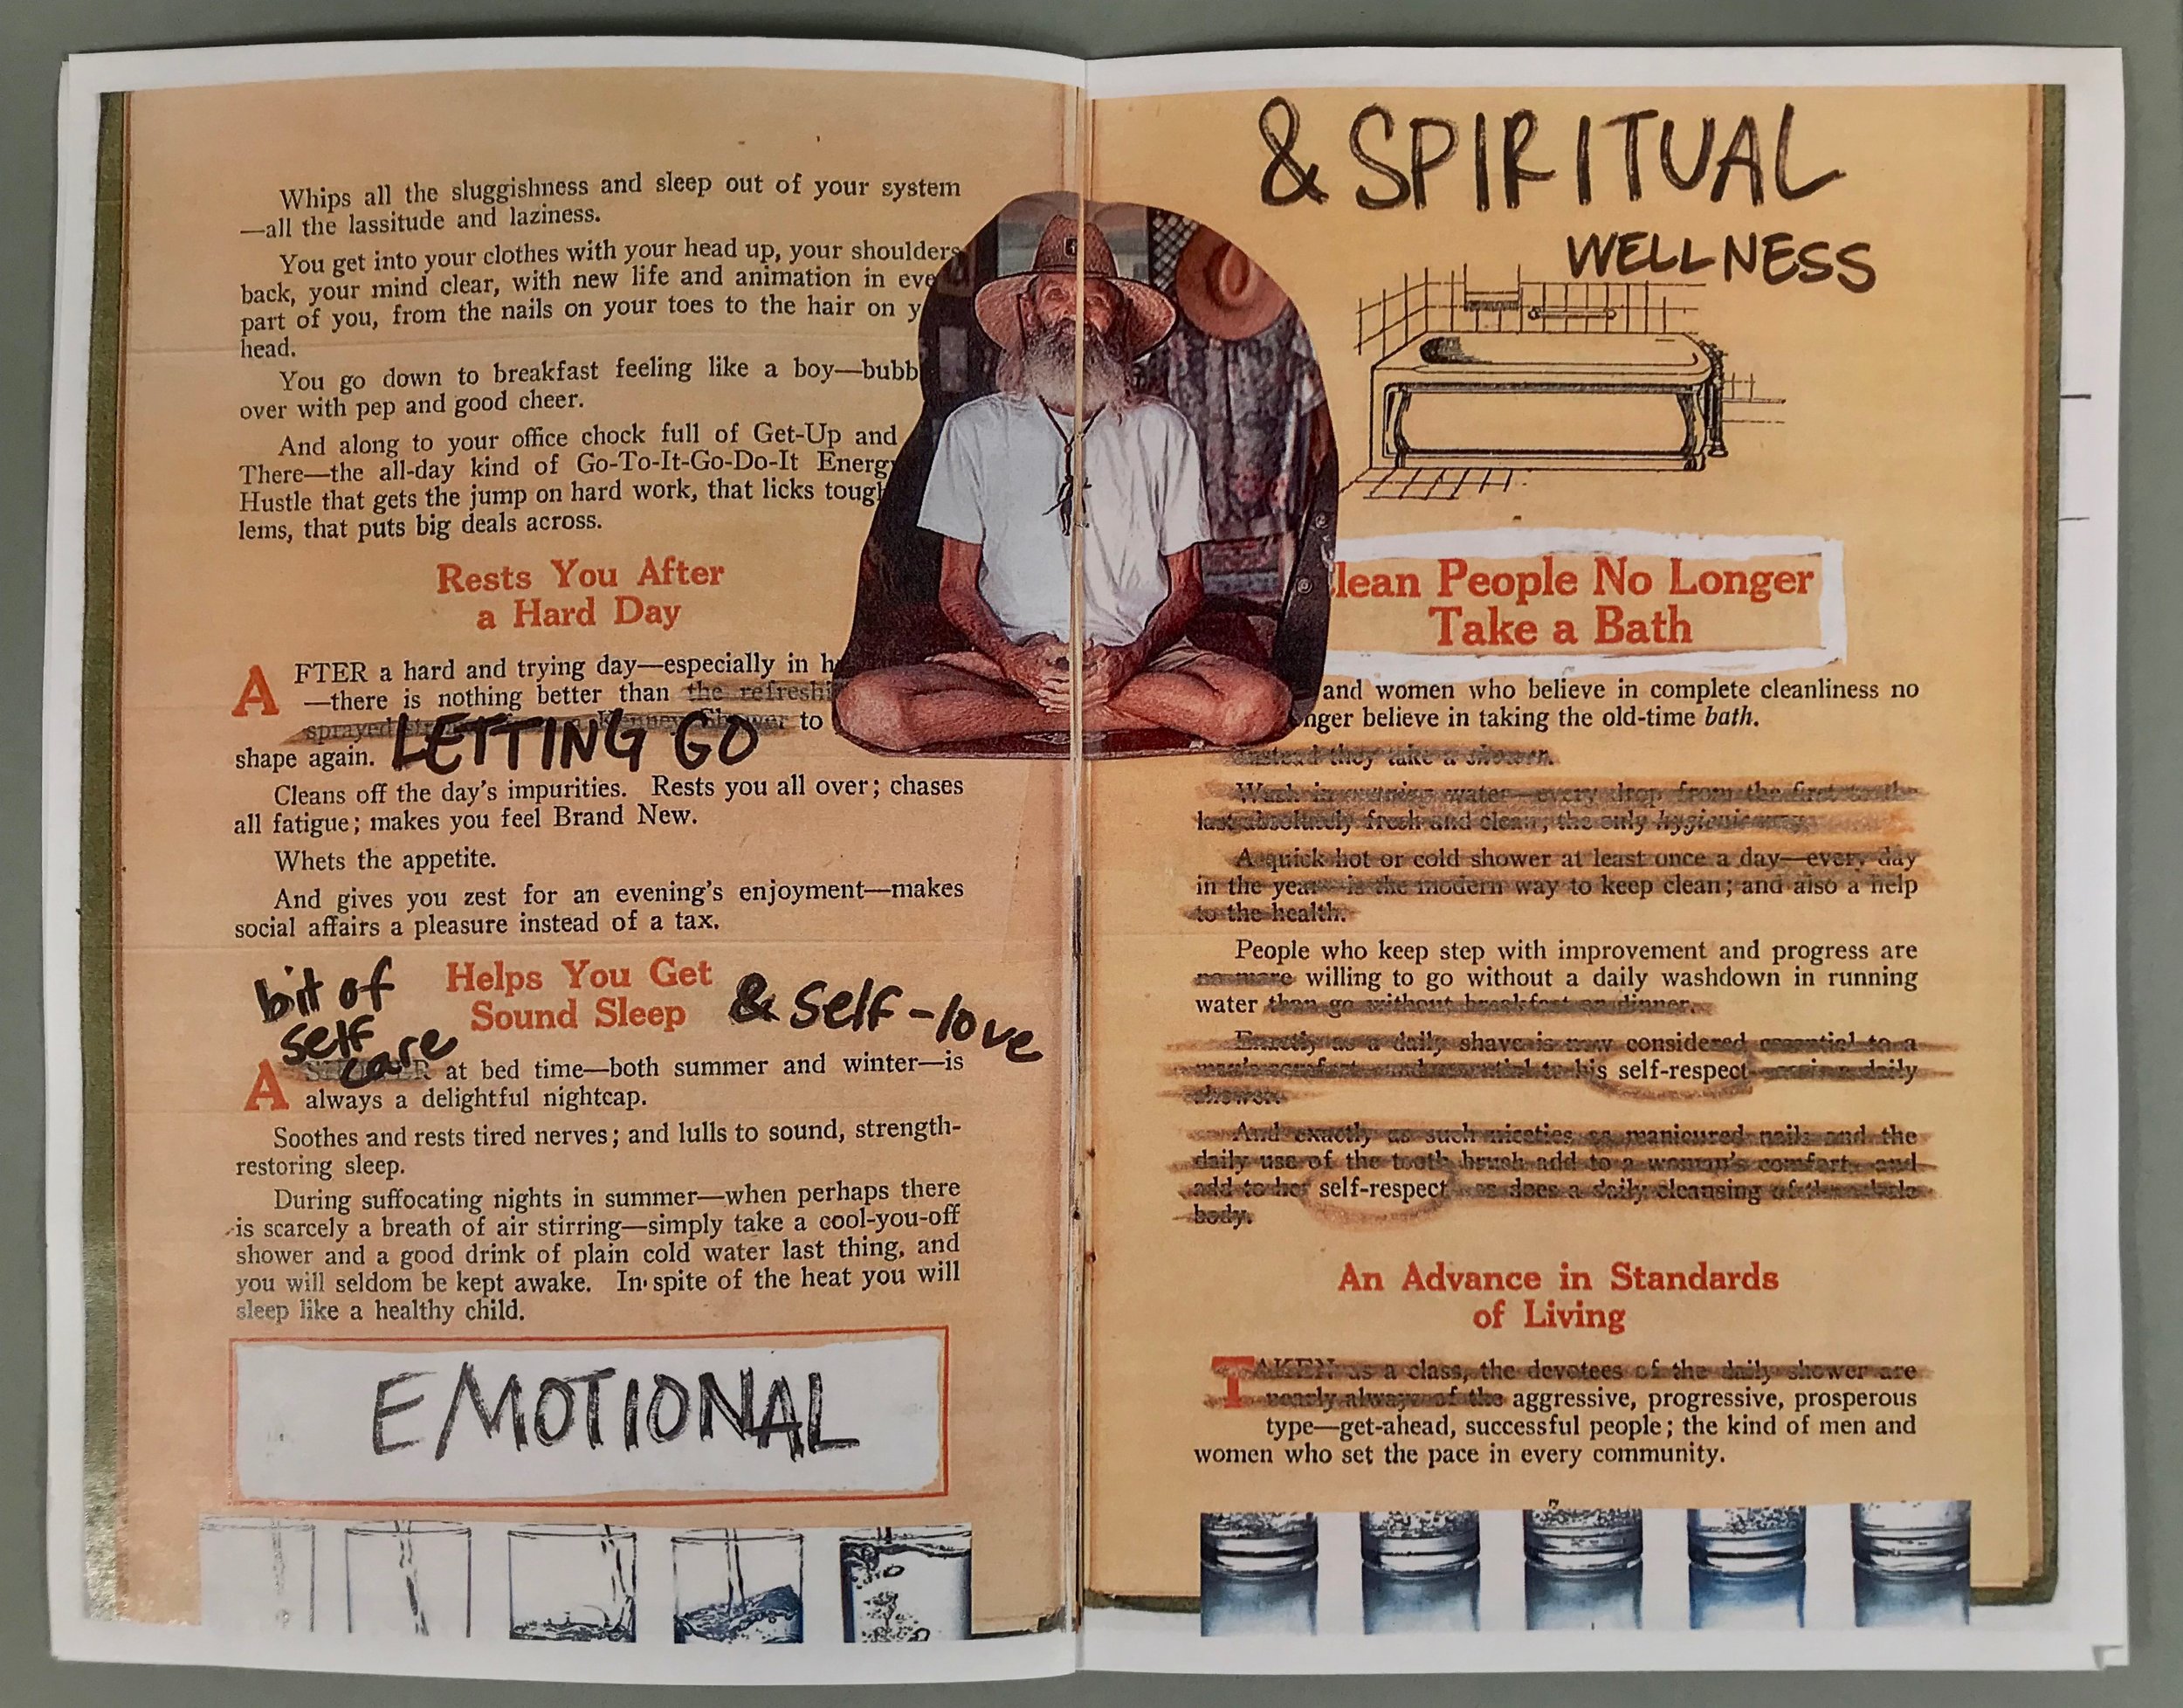 Whips all the sluggishness and sleep out of your system
—all the lassitude and laziness.
You get into your clothes with your head up, your shoulders
back, your mind clear, with new life and animation in eve
part of you, from the nails on your toes to the hair on y
head.
You go down to breakfast feeling like a boy—bubb
over with pep and good cheer.
And along to your office chock full of Get-Up and
There—the all-day kind of Go-To-It-Go-Do-It Energy
Hustle that gets the jump on hard work, that licks tough
lems, that puts big deals across.
Rests You After
a Hard Day
AFTER a hard and trying day—especially in h
—there is nothing better than the refreshi
sprayed Kenney Shower to
shape again. LETTING GO
Cleans off the day's impurities. Rests you all over; chases
all fatigue; makes you feel Brand New.
Whets the appetite.
And gives you zest for an evening's enjoyment—makes
social affairs a pleasure instead of a tax.
Helps You Get
Sound Sleep
& self-love
bit of
self
care
A SHOWER at bed time—both summer and winter—is
always a delightful nightcap.
Soothes and rests tired nerves; and lulls to sound, strength-
restoring sleep.
During suffocating nights in summer—when perhaps there
is scarcely a breath of air stirring—simply take a cool-you-off
shower and a good drink of plain cold water last thing, and
you will seldom be kept awake. In spite of the heat you will
sleep like a healthy child.
EMOTIONAL
& SPIRITUAL
WELLNESS
lean People No Longer
Take a Bath
and women who believe in complete cleanliness no
nger believe in taking the old-time bath.
Instead they take a shower.
Wash in running water—every drop from the first to the
last absolutely fresh and clean; the only hygienic way.
A quick hot or cold shower at least once a day—every day
in the year—is the modern way to keep clean; and also a help
to the health.
People who keep step with improvement and progress are
no more willing to go without a daily washdown in running
water than go without breakfast or dinner.
Exactly as a daily shave is now considered essential to a
man's comfort and essential to his self-respect daily
shower.
And exactly as such niceties as manicured nails and the
daily use of the tooth brush add to a woman's comfort, and
add to her self-respect as does a daily cleansing of the whole
body.
An Advance in Standards
of Living
TAKEN as a class, the devotees of the daily shower are
nearly always of the aggressive, progressive, prosperous
type—get-ahead, successful people; the kind of men and
women who set the pace in every community.
7